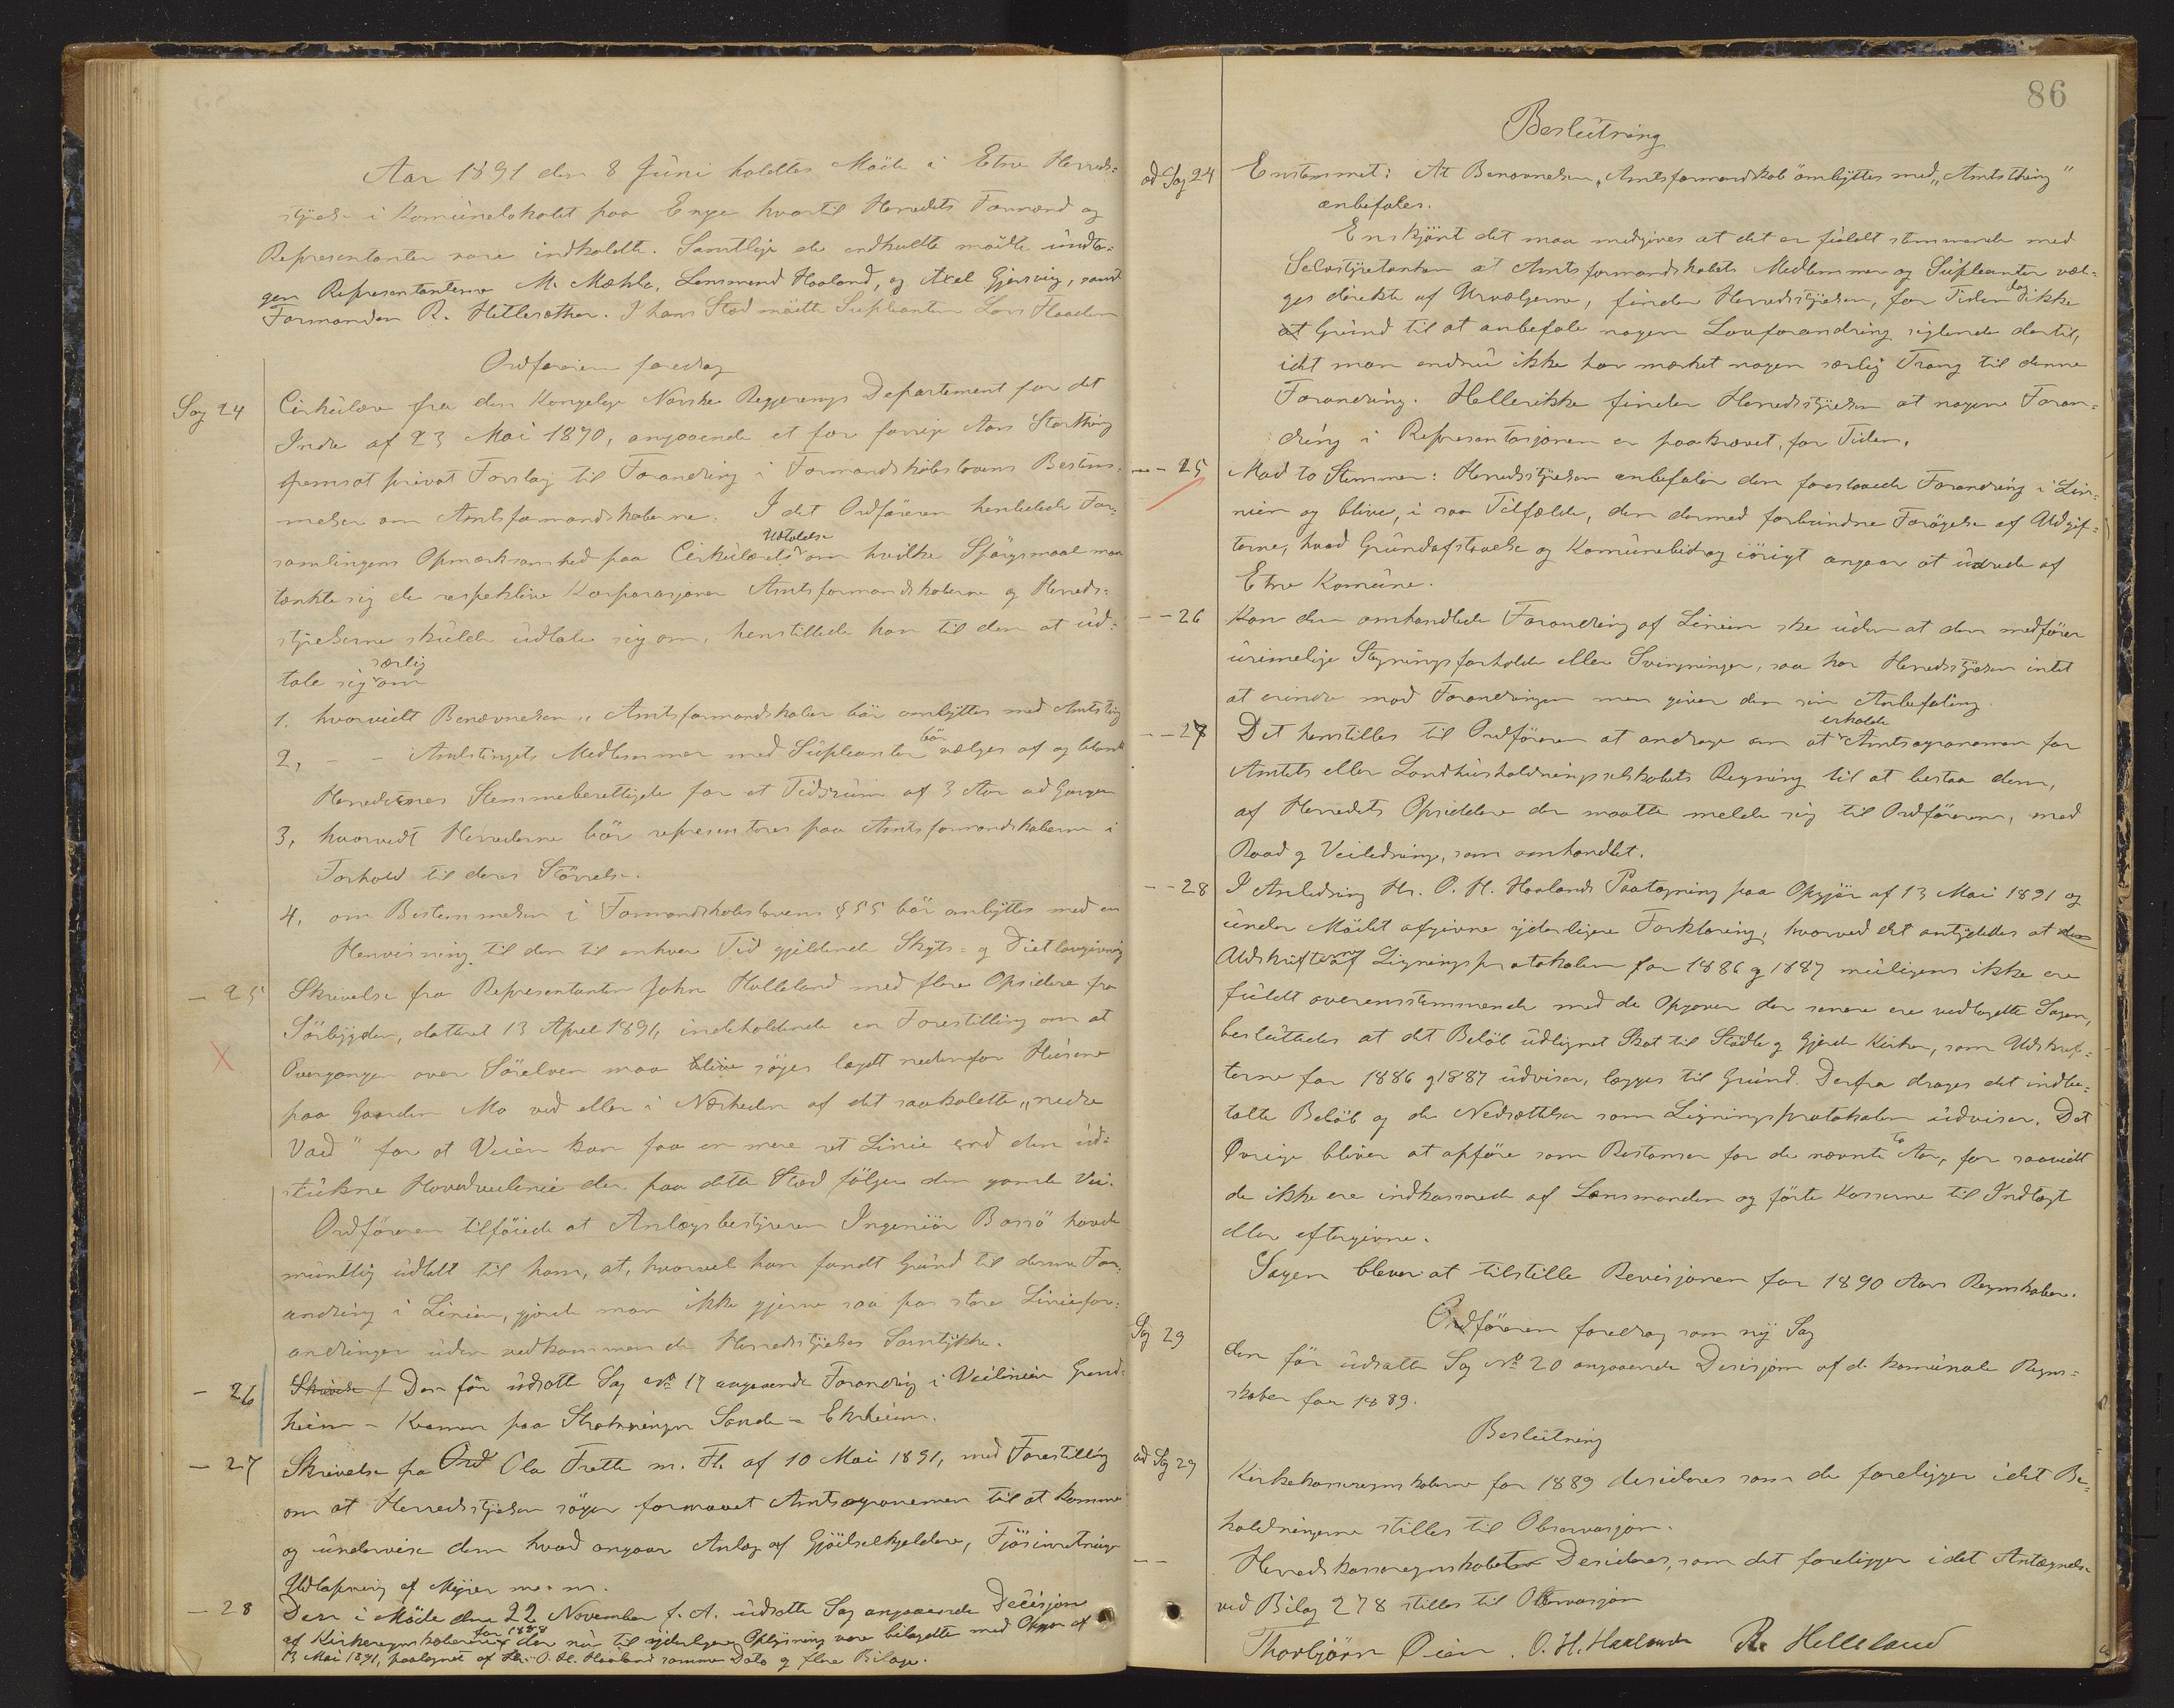 Aar 1891 den 8 Juni holdtes Möde i Etne Herreds=
styrelse i Komunelokalet paa Enge hvortil Herredets Formænd og
Repræsentanter vare indkaldte. Samtlige de indkaldte mödte undta=
gen Repræsentanterne M. Mæhle, Lensmand Haaland, og Axel Gjersvig, samt
Formanden R. Hetlesæther. I hans Sted mödte Supleanten Lars Flaaden
Ordföreren foredrog
Sag 24 Cirkulære fra den Kongelige Norske Regjerings Departement for det
Indre af 23 Mai 1890, angaaende et for forrige Aars Storthing
fremsat privat Forslag til Forandring i Formandskabslovens Bestem=
melser om Amtsformandskaberne. I det Ordföreren henledede For=
samlingens Opmærksomhed paa Cirkulærets Udtalelse om hvilke Spörgsmaal man
tænkte sig de respektive Korporasjoner Amtsformandskaberne og Herreds=
styrelserne skulde udtale sig om, henstillede han til dem at ud=
tale sig særlig om
1. hvorvidt Benævnelsen "Amtsformandskaber bör ombyttes med Amtsting
2, - - Amtstingets Medlemmer med Supleanter bör vælges af og blandt
Herredernes Stemmeberettigede for et Tidsrum af 3 Aar ad Gangen
3, hvorvidt Herrederne bör representeres paa Amtsformandskaberne i
Forhold til deres Störrelse.
4, om Bestemmelsen i Formandskabslovens § 55 bör ombyttes med en
Henvisning til den til enhver Tid gjeldende Skyts= og Diætlovgivning
- 25 Skrivelse fra Representanten John Halleland med flere Opsidere fra
Sörbygden, datteret 13 April 1891, indeholdende en Forestilling om at
X Overgangen over Sörelven maa blive söges lagdt nedenfor Husene
paa Gaarden Mo ved eller i Nærheden af det saakaldte "nedre
Vad" for at Veien kan faa en mere ret Linie end den ud=
stukne Hovedveilinie der paa dette Sted fölger den gamle Vei.
Ordföreren tilföiede at Anlægsbestyreren Ingeniör Bassö havde
muntlig udtalt til ham, at, hvorvel han fandt Grund til denne For=
andring i Linien, gjorde man ikke gjerne saa pas store Liniefor=
andringer uden vedkommende Herredsstyrelses Samtykke.
- 26 Skrivelse f Den för udsatte Sag No 17 angaaende Forandring i Veilinien Grind=
heim - Kvamen paa Strækningen Sande - Ekrheim.
- 27 Skrivelse fra Ord Ola Frette m. Fl. af 10 Mai 1891, med Forestilling
om at Herredsstyrelsen söger formaaet Amtsagronomen til at komme
og undervise dem hvad angaar Anlæg af Gjödselkjeldere, Fjösinretninger
Udtapning af Myrer m. m.
- 28 Den i Möde den 22 November f. A. udsatte Sag angaaende Decisjon
af Kirkeregnskaberne for 1888 der nu til yderligere Oplysning vare bilagdte med Opgjör af
13 Mai 1891, paategnet af Hr. O. H. Haaland samme Dato og flere Bilage.
86
Beslutning
ad Sag 24 Enstemmet: At Benævnelsen "Amtsformandskab ombyttes med "Amtsthing"
anbefales.
Enskjönt det maa medgives at det er fuldt stemmende med
Selvstyretanken at Amtsformandskabets Medlemmer og Supleanter væl=
ges direkte af Urvælgerne, finder Herredsstyrelsen, for Tiden dog ikke
at Grund til at anbefale nogen Lovforandring sigtende dertil,
idet man endnu ikke har mærket nogen særlig Trang til denne
Forandring. Hellerikke finder Herredsstyrelsen at nogen Foran=
dring i Representasjonen er paakrævet, for Tiden.
- - 25 Mod to Stemmer: Herredsstyrelsen anbefaler den foreslaaede Forandring i Lin=
nien og blive, i saa Tilfælde, den dermed forbundne Forögelse af Udgif=
terne, hvad Grundafstaaelse og Komunebidrag iövrigt angaar at udrede af
Etne Komune.
- - 26 Kan den omhandlede Forandring af Linien ske uden at den medförer
urimelige Stigningsforholde eller Svingninger, saa har Herredsstyrelsen intet
at erindre mod Forandringen men giver den sin Anbefaling.
- - 27 Det henstilles til Ordföreren at andrage om at erholde Amtsagronomen for
Amtets eller Landhusholdningsselskabets Regning til at bistaa dem,
af Herredets Opsiddere der maatte melde sig til Ordföreren, med
Raad og Veiledning, som omhandlet.
- - 28 I Anledning Hr. O. H. Haalands Paategning paa Opgjör af 13 Mai 1891 og
under Mödet afgivne yderligere Forklaring, hvorved det antydedes at den
Udskrifterne af Ligningsprotokolen for 1886 og 1887 muligens ikke ere
fuldt overensstemmende med de Opgaver der senere ere vedlagdte Sagen,
besluttedes at det Belöb udlignet Skat til Stödle og Gjerde Kirker, som Udskrif=
terne for 1886 og 1887 udviser, lægges til Grund. Derfra drages det indbe=
talte Belöb og de Nedsættelser som Ligningsprotokolen udviser. Det
Övrige bliver at opföre som Restanser for de nævnte to Aar, for saavidt
de ikke ere indkasserede af Lensmanden og förte Kasserne til Indtægt
eller eftergivne.
Sagen bliver at tilstille Revisjonen for 1890 Aars Regnskaber.
Ordföreren foredrog som ny Sag
Sag 29 den för udsatte Sag No 20 angaaende Desisjon af de komunale Regn=
skaber for 1889.
Beslutning
ad Sag 29 Kirkekasseregnskaberne for 1889 desideres som de foreligger idet Be=
holdningerne stilles til Observasjon.
- - Herredskasseregnskabet Desideres, som det foreligger idet Antegnelse
ved Bilag 278 stilles til Observasjon
Thorbjörn Öien. O. H. Haaland R. Helleland